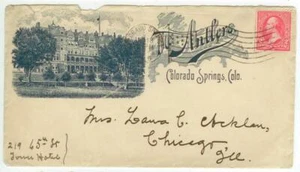 The Antlers
Colorado Springs, Colo.
Mrs. Laura C.
Chicago
Ill.
219 65th St